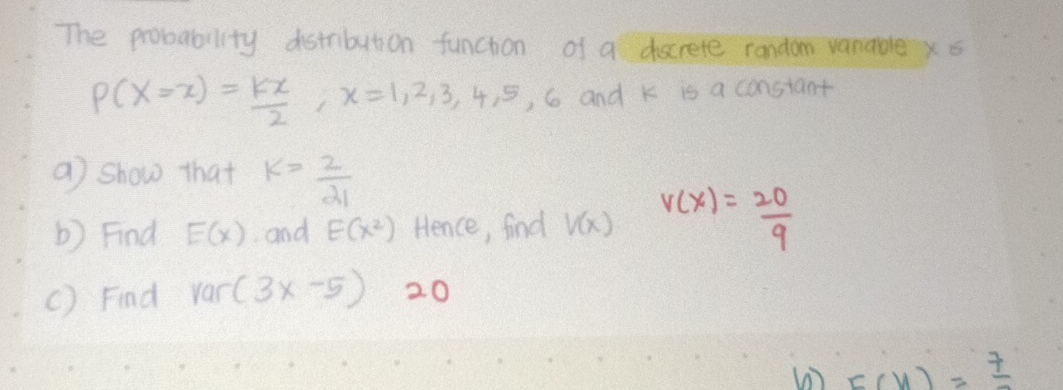 The probability distribution function of a discrete random variable x is
P(X=x) = kx/2 , x=1,2,3,4,5,6 and k is a constant
a) Show that k= 2/21
b) Find E(x). and E(x²) Hence, find V(x)
V(X)= 20/9
c) Find var(3x-5) 20
b) E(X) = 7